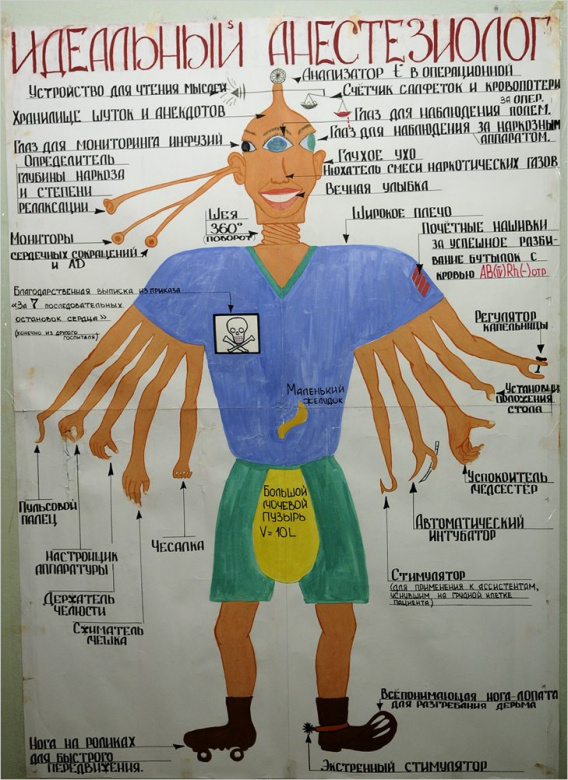 ИДЕАЛЬНЫЙ АНЕСТЕЗИОЛОГ
S
АНАЛИЗАТОР t° В ОПЕРАЦИОННОЙ
УСТРОЙСТВО ДЛЯ ЧТЕНИЯ МЫСЛЕЙ
СЧЁТЧИК САЛФЕТОК И КРОВОПОТЕРИ
ЗА ОПЕР.
ХРАНИЛИЩЕ ШУТОК И АНЕКДОТОВ
ГЛАЗ ДЛЯ НАБЛЮДЕНИЯ ПОЛЕМ.
ГЛАЗ ДЛЯ НАБЛЮДЕНИЯ ЗА НАРКОЗНЫМ
АППАРАТОМ.
ГЛАЗ ДЛЯ МОНИТОРИНГА ИНФУЗИЙ
ОПРЕДЕЛИТЕЛЬ
ГЛУБИНЫ НАРКОЗА
И СТЕПЕНИ
РЕЛАКСАЦИИ
ГЛУХОЕ УХО
НЮХАТЕЛЬ СМЕСИ НАРКОТИЧЕСКИХ ГАЗОВ
ВЕЧНАЯ УЛЫБКА
ШЕЯ
360°
(ПОВОРОТ)
ШИРОКОЕ ПЛЕЧО
МОНИТОРЫ
СЕРДЕЧНЫХ СОКРАЩЕНИЙ
И AD
ПОЧЁТНЫЕ НАШИВКИ
ЗА УСПЕШНОЕ РАЗБИ-
ВАНИЕ БУТЫЛОК С
КРОВЬЮ AB(IV)Rh(-)ОТР.
БЛАГОДАРСТВЕННАЯ ВЫПИСКА ИЗ ПРИКАЗА
«ЗА 7 ПОСЛЕДОВАТЕЛЬНЫХ
ОСТАНОВОК СЕРДЦА»
(КОНЕЧНО ИЗ ДРУГОГО
ГОСПИТАЛЯ)
РЕГУЛЯТОР
КАПЕЛЬНИЦЫ
УСТАНОВЩИК
ПОЛОЖЕНИЯ
СТОЛА
МАЛЕНЬКИЙ
ЖЕЛУДОК
УСПОКОИТЕЛЬ
МЕДСЕСТЁР
БОЛЬШОЙ
МОЧЕВОЙ
ПУЗЫРЬ
V=10L
ПУЛЬСОВОЙ
ПАЛЕЦ
АВТОМАТИЧЕСКИЙ
ИНТУБАТОР
НАСТРОЙЩИК
АППАРАТУРЫ
ЧЕСАЛКА
ДЕРЖАТЕЛЬ
ЧЕЛЮСТИ
СЖИМАТЕЛЬ
МЕШКА
СТИМУЛЯТОР
(ДЛЯ ПРИМЕНЕНИЯ К АССИСТЕНТАМ,
УСНУВШИМ, НА ГРУДНОЙ КЛЕТКЕ
ПАЦИЕНТА)
ВСЁПОНИМАЮЩАЯ НОГА-ЛОПАТА
ДЛЯ РАЗГРЕБАНИЯ ДЕРЬМА
НОГА НА РОЛИКАХ
ДЛЯ БЫСТРОГО
ПЕРЕДВИЖЕНИЯ.
ЭКСТРЕННЫЙ СТИМУЛЯТОР